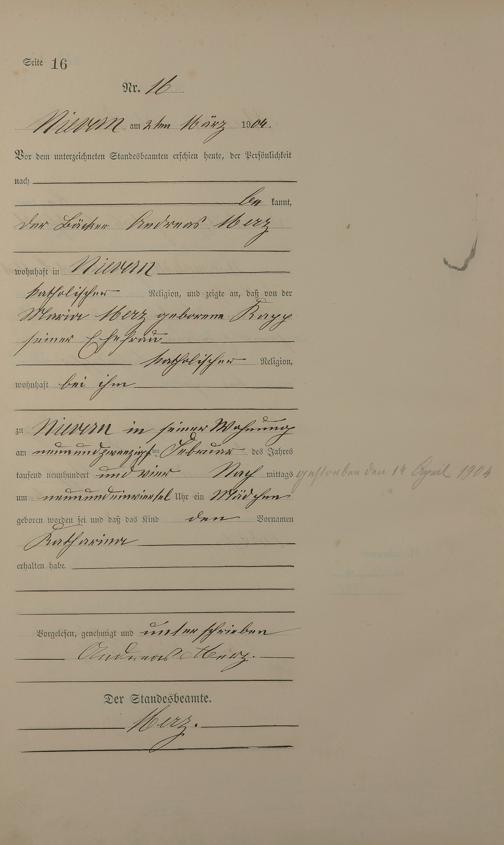 Seite 16
Nr. 16
Nievern am 2ten März 1904.
Vor dem unterzeichneten Standesbeamten erschien heute, der Persönlichkeit
nach
be kannt,
der Bäcker Andreas Merz
wohnhaft in Nievern
katholischer Religion, und zeigte an, daß von der
Maria Merz geborene Kapp
seiner Ehefrau
katholischer Religion,
wohnhaft bei ihm
zu Nievern in seiner Wohnung
am neunundzwanzigsten Februar des Jahres
tausend neunhundert und vier Nach mittags
um neunundeinviertel Uhr ein Mädchen
geboren worden sei und daß das Kind den Vornamen
Katharina
erhalten habe
Vorgelesen, genehmigt und unterschrieben
Andreas Merz.
Der Standesbeamte.
Merz.
gestorben den 14 April 1904